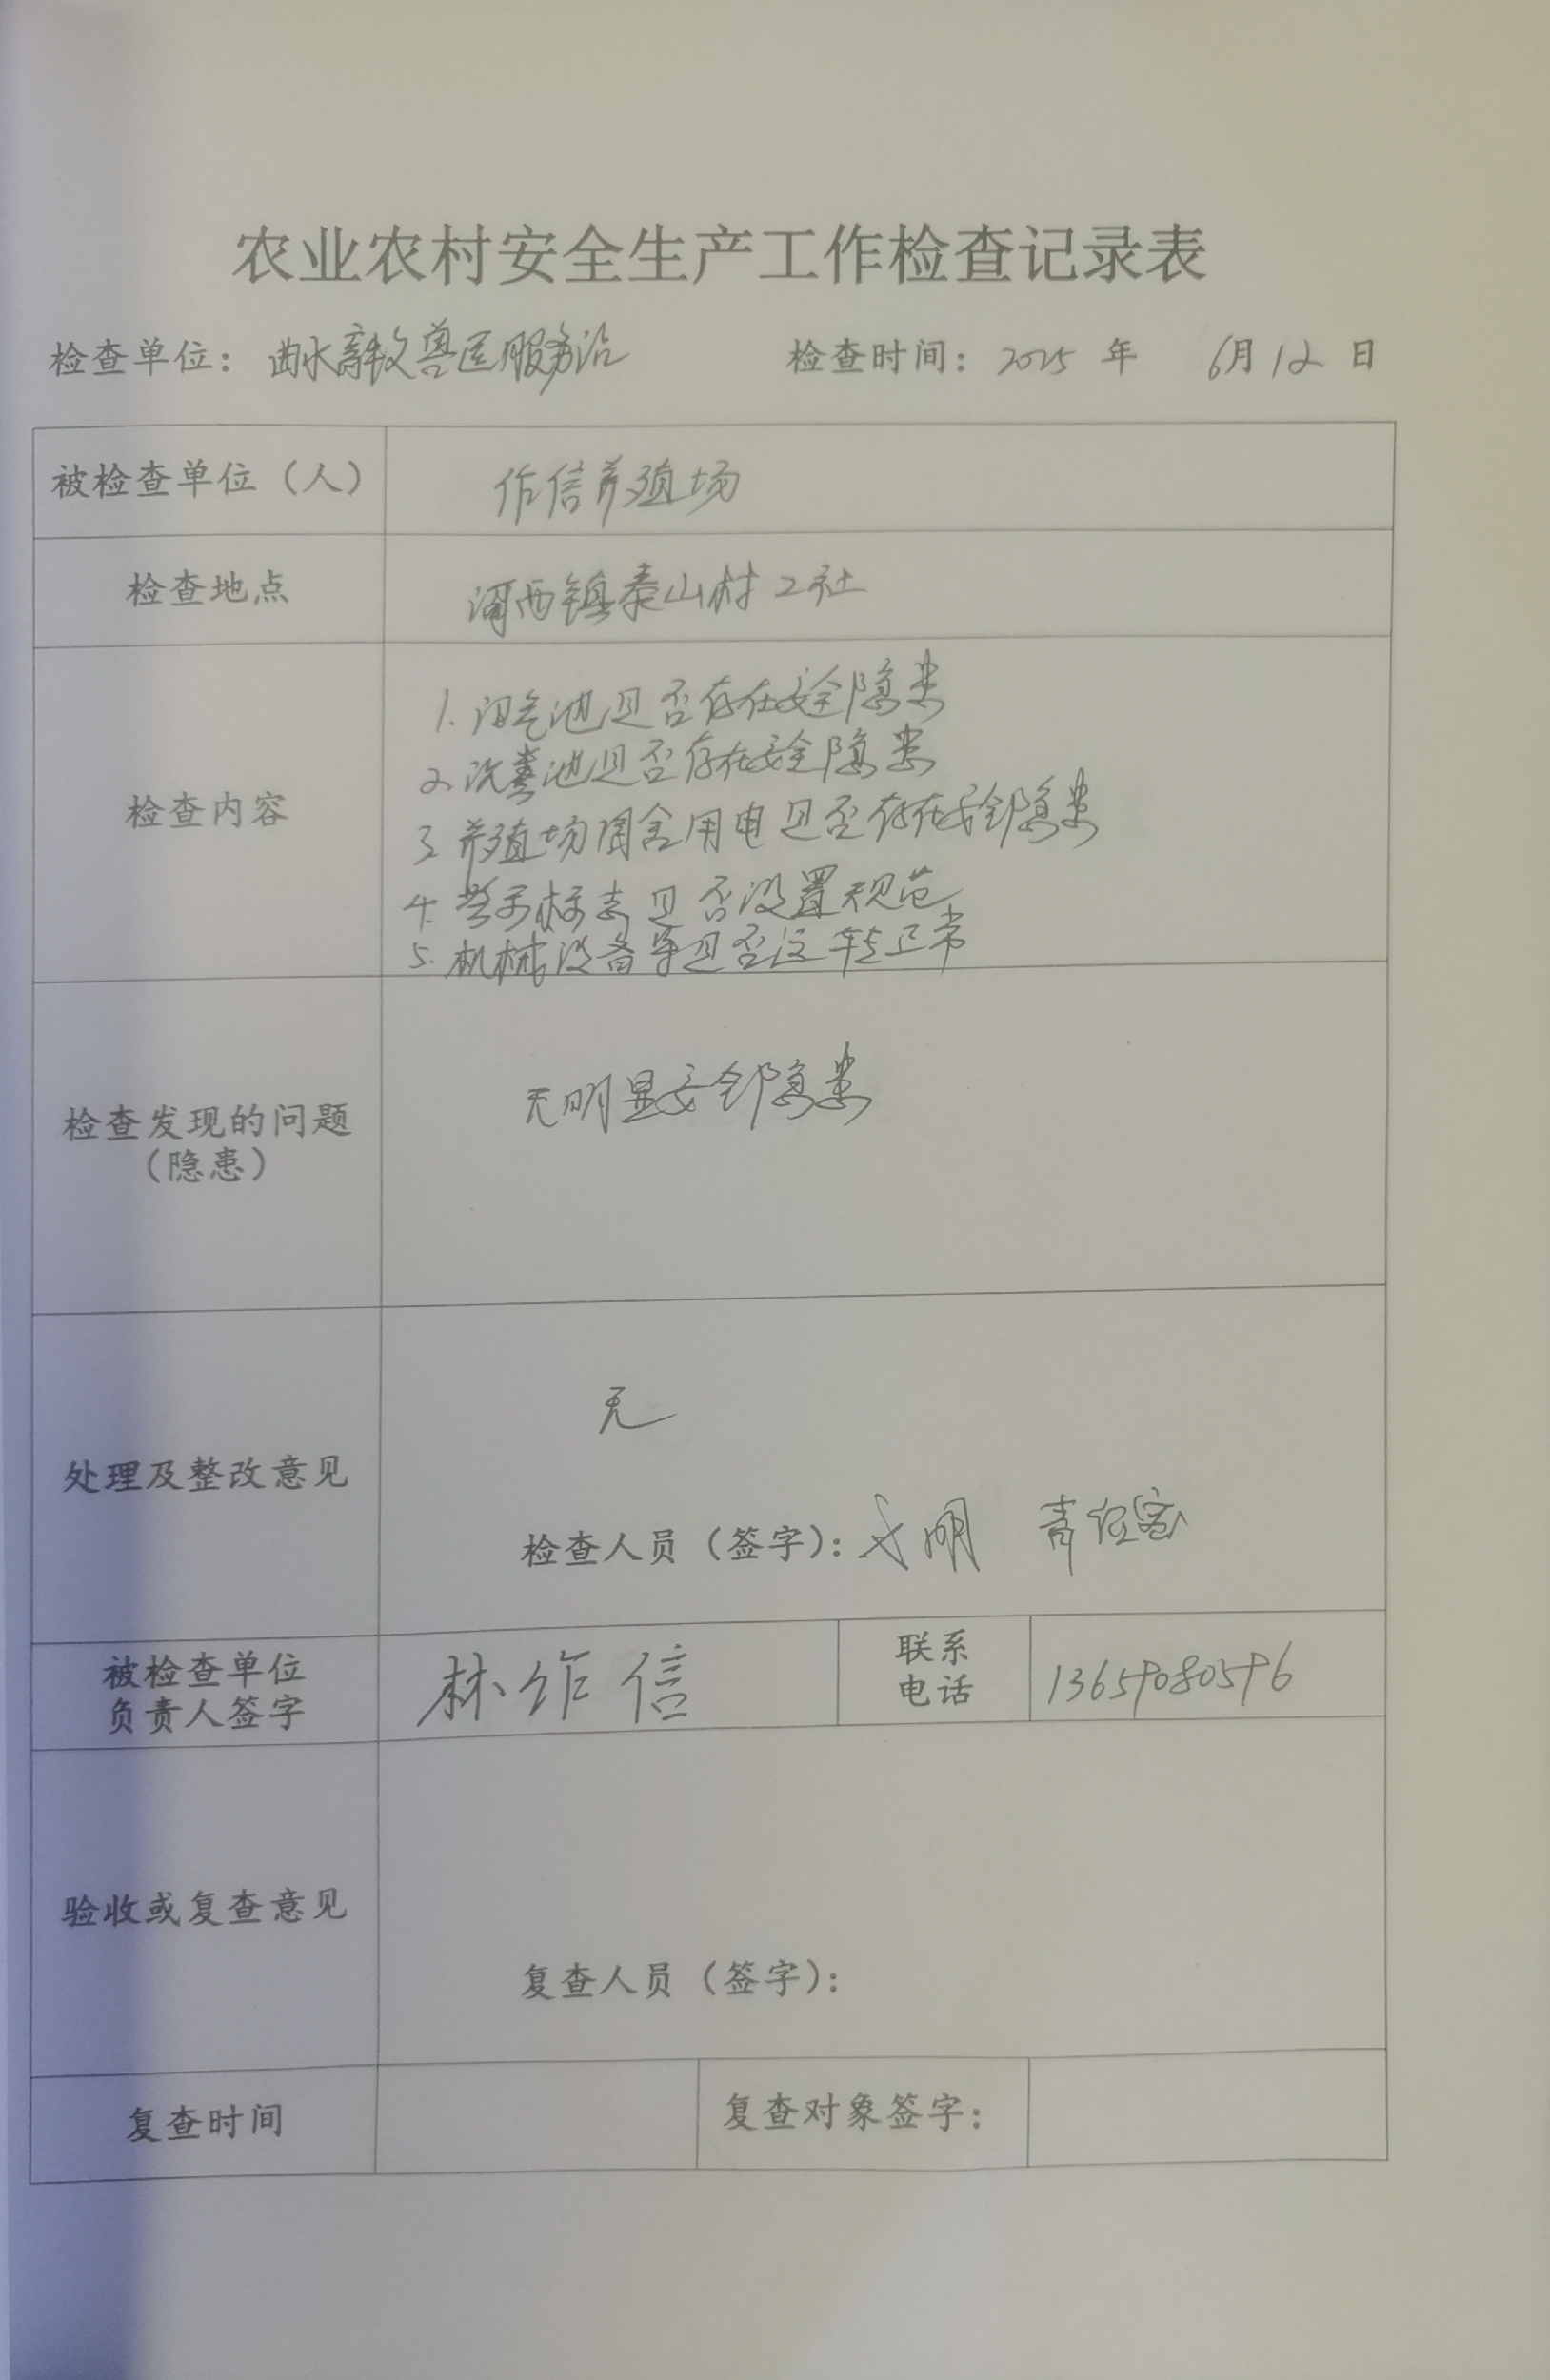 农业农村安全生产工作检查记录表
检查单位：曲水畜牧兽医服务站 检查时间：2025 年 6月12 日
被检查单位（人） 作信养殖场
检查地点 河西镇泰山村2社
检查内容
1.沼气池是否存在安全隐患
2.沉粪池是否存在安全隐患
3 养殖场圈舍用电是否存在安全隐患
4.警示标志是否设置规范
5.机械设备等是否运转正常
检查发现的问题
（隐患）
无明显安全隐患
处理及整改意见
无
检查人员（签字）：
被检查单位
负责人签字
林作信
联系
电话
13659080596
验收或复查意见
复查人员（签字）：
复查时间 复查对象签字：